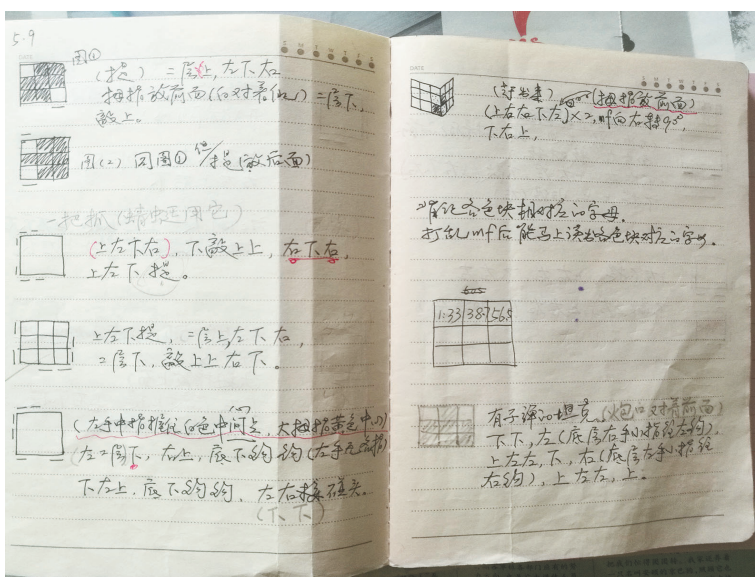 5.9
图①
(提) 二层上,左下右
拇指放前面(白对着你) 二层下,
敲上。
图(2) 同图① 但提(敲后面)
一把抓(蜻蜓用它)
(上左下右),下敲上上,右下右,
上左下提。
上左下提,二层上,左下右,
二层下,敲上上右下。
(左手中指推住白色中间点,大拇指黄色中心)
左2层下,右上,底下钩钩(左手无名指)
下左上,底下钩钩,左右接碰头。
(下下)
DATE
(拇指放前面)
(上右右下左)×2,mf向右转90°,
下右上,
各色块相对应的字母.
打乱mf后能马上读出各色块对应的字母。
1:33 38.7 56.5
有子弹的坦克(火包口对着前面)
下下,左(底层右手小指往左钩),
上左左,下,右(底层左手小指往
右钩),上左左,上。